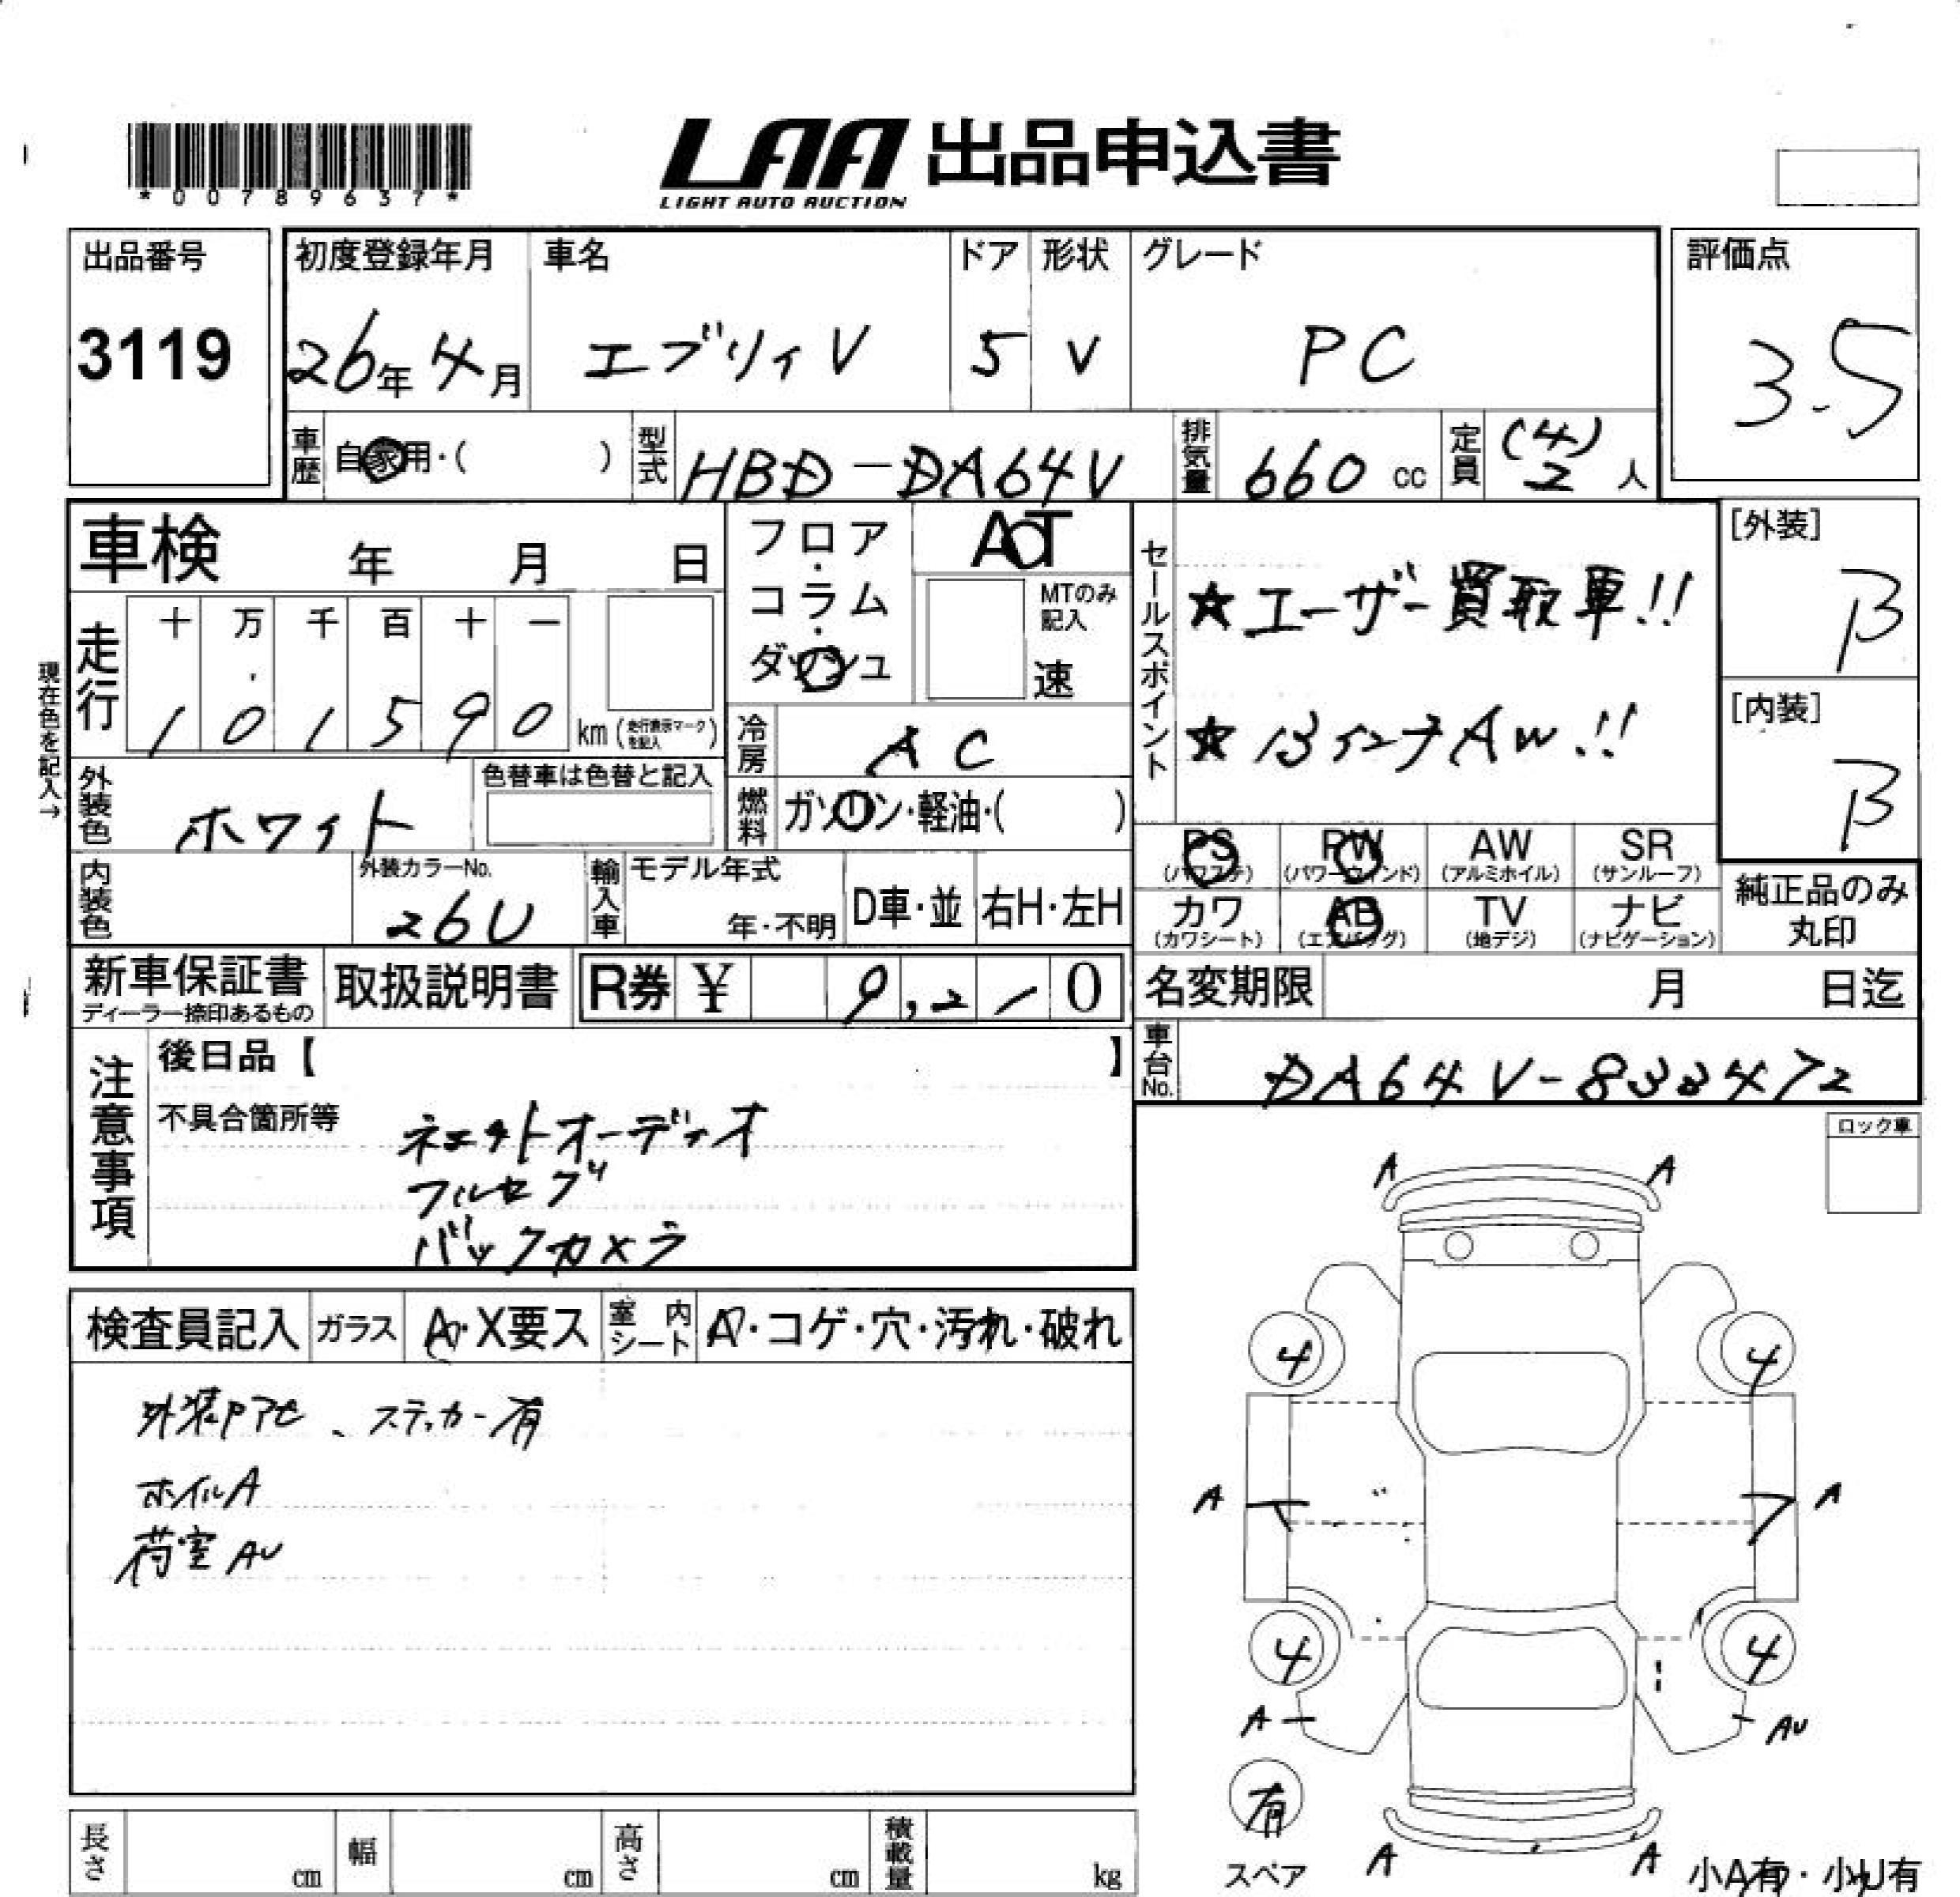 *00789637*
LAA 出品申込書
LIGHT AUTO AUCTION
出品番号
3119
初度登録年月
26年4月
車名
エブリィV
ドア
5
形状
V
グレード
PC
評価点
3.5
車歴 自家用・( )
型式 HBD-DA64V
排気量 660 cc
定員 (4) 2 人
車検 年 月 日
フロア・コラム・ダッシュ
AT
MTのみ記入
速
セールスポイント
★エーザー買取車!!
★13インチAW!!
[外装]
B
[内装]
B
現在色を記入→
走行
十 万 千 百 十 一
1 0 1 5 9 0 km (走行表示マークを記入)
冷房 AC
外装色 ホワイト
色替車は色替と記入
燃料 ガソリン・軽油・( )
PS (パワステ)
PW (パワーウインド)
AW (アルミホイル)
SR (サンルーフ)
カワ (カワシート)
AB (エアバッグ)
TV (地デジ)
ナビ (ナビゲーション)
純正品のみ丸印
内装色
外装カラーNo.
26U
輸入車
モデル年式
年・不明
D車・並
右H・左H
新車保証書
ディーラー捺印あるもの
取扱説明書
R券 ¥ 9,210
名変期限 月 日迄
車台No.
注意事項
後日品【 】
不具合箇所等
オーディオ
フルセグ
バックカメラ
ロック車
検査員記入
ガラス
A・X要ス
室内シート
A・コゲ・穴・汚れ・破れ
、ステッカー有
ホイルA
荷室AU
A A
4 4
A A
4 4
A AU
有
スペア
A A
小A有・小U有
長さ cm
幅 cm
高さ cm
積載量 kg